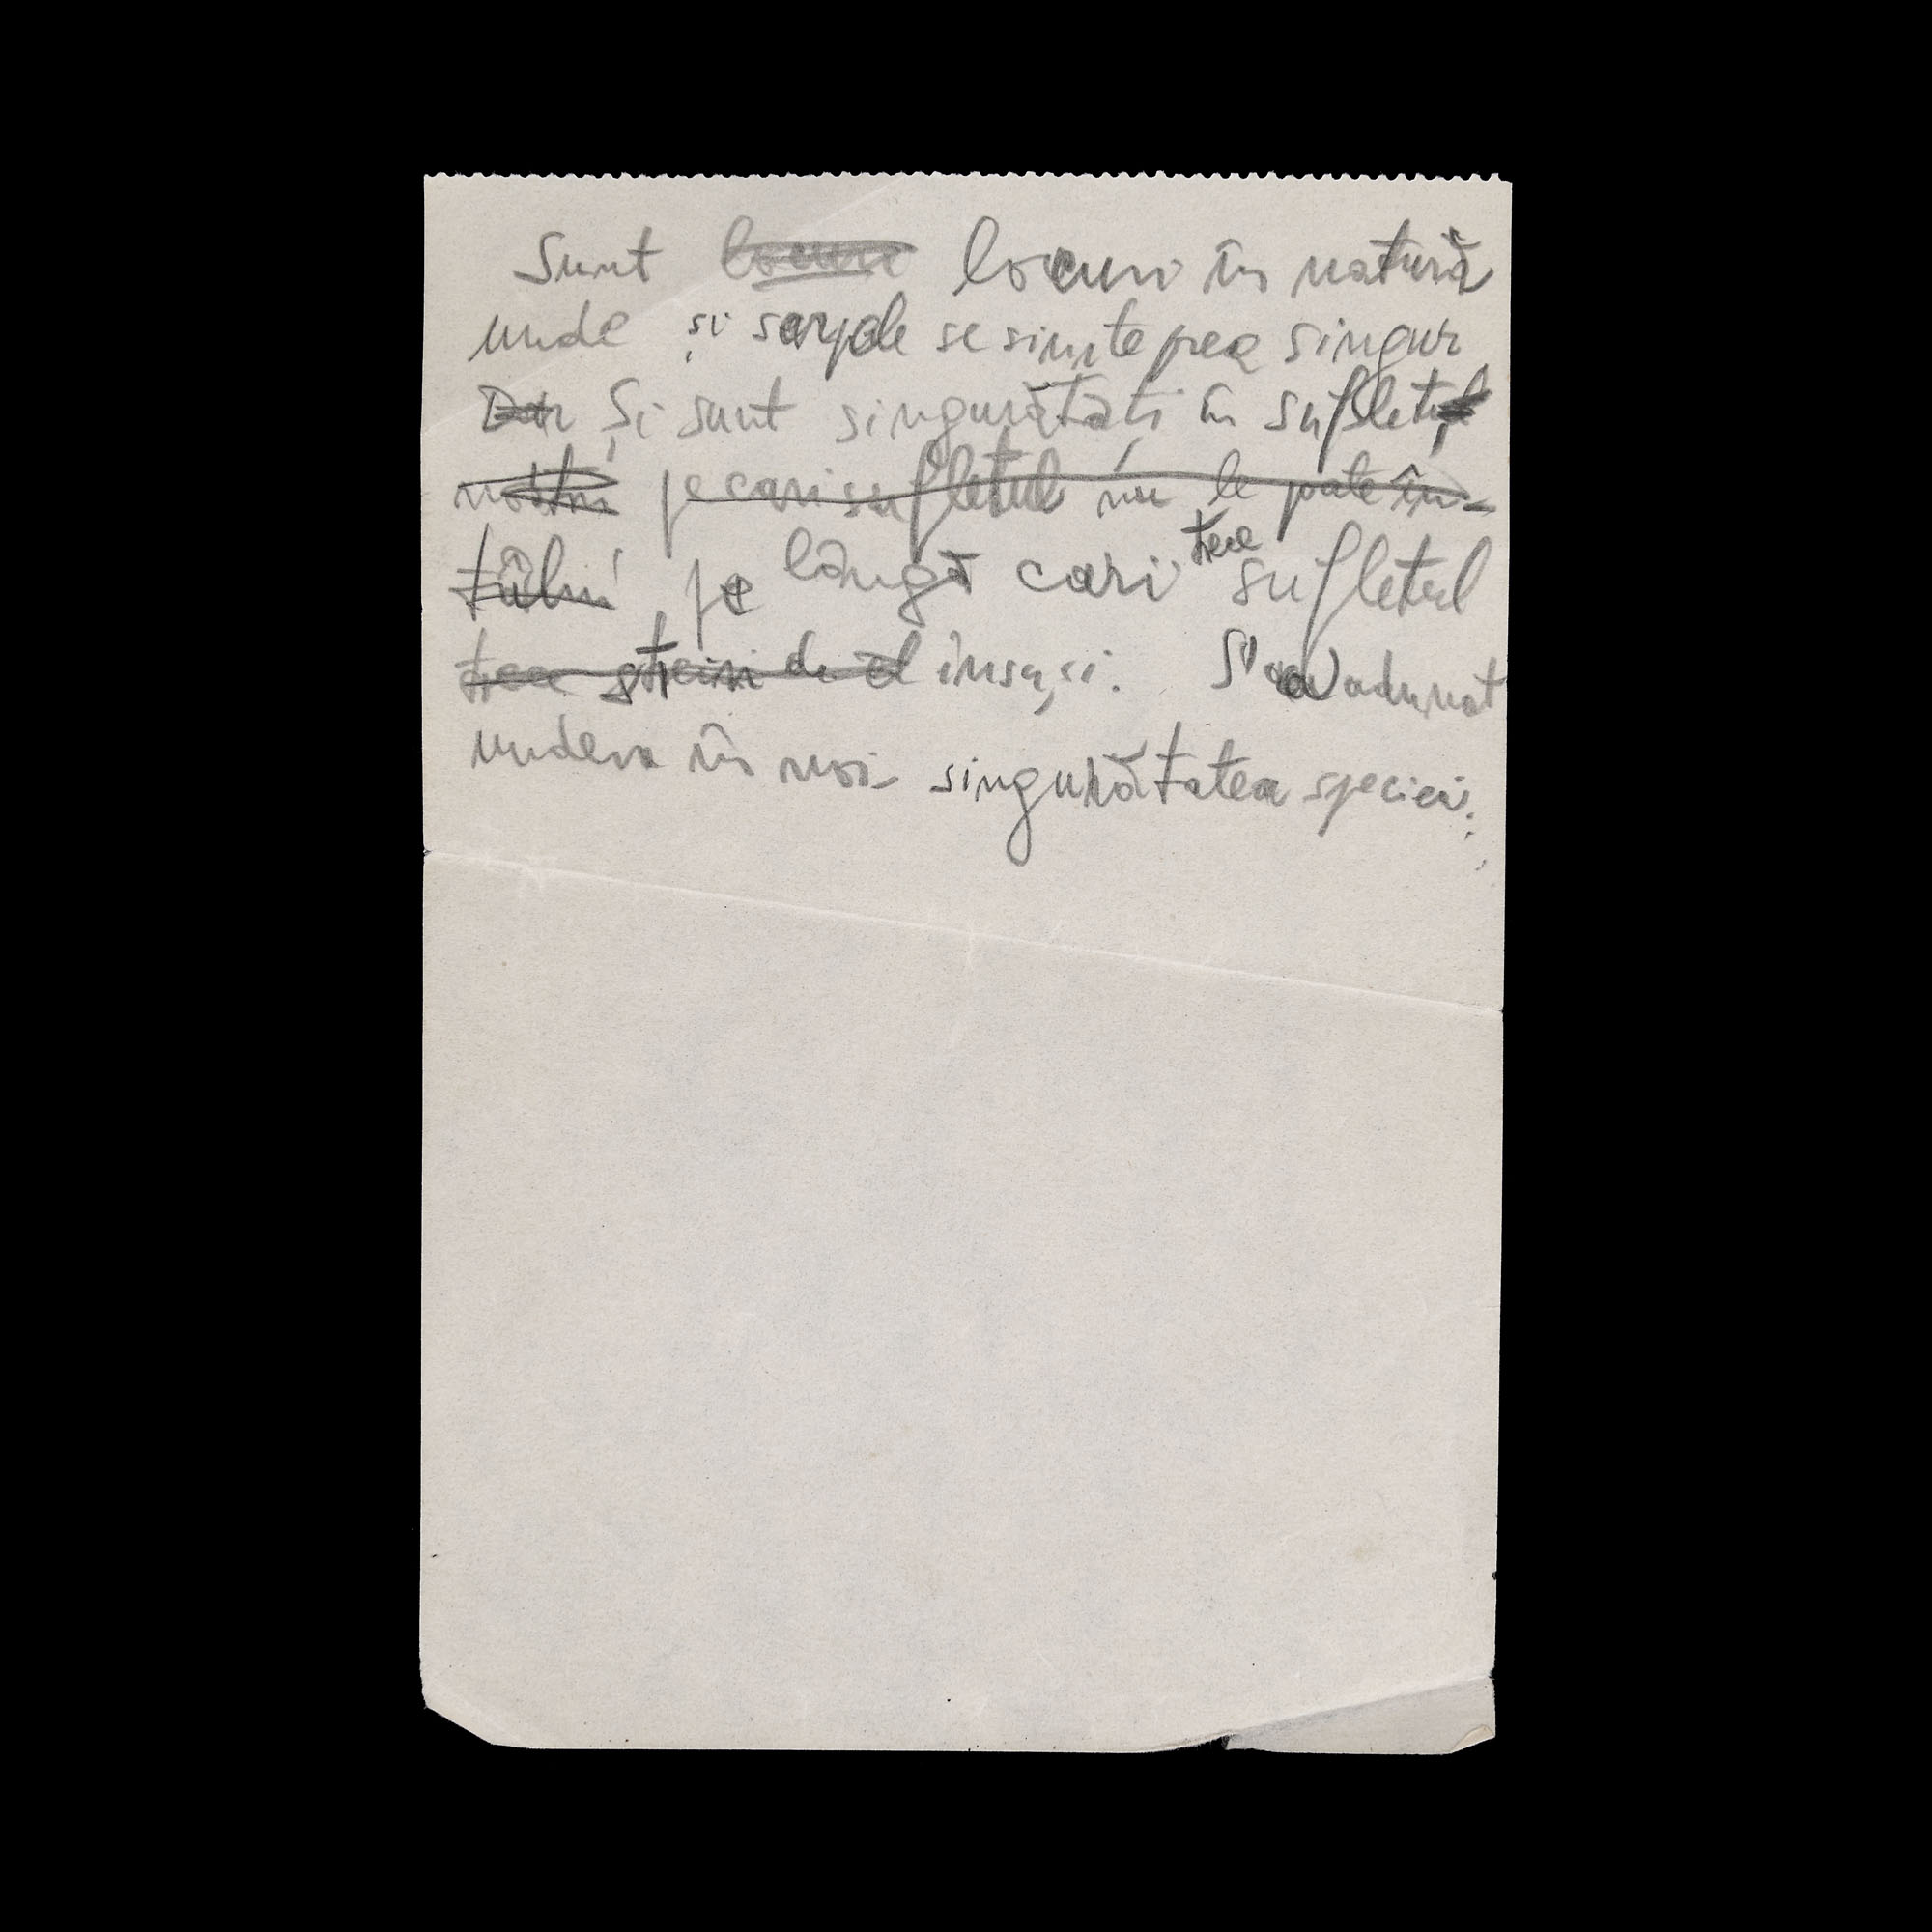 Sunt locuri locuri în natură
unde și șarpele se simte prea singur
Dar Și sunt singurătăți în suflet,
nostru pe cari sufletul nu le poate în-
tâlni pe lângă cari trece sufletul
trece străin de el însuși. S'a adunat
undeva în noi singurătatea speciei.